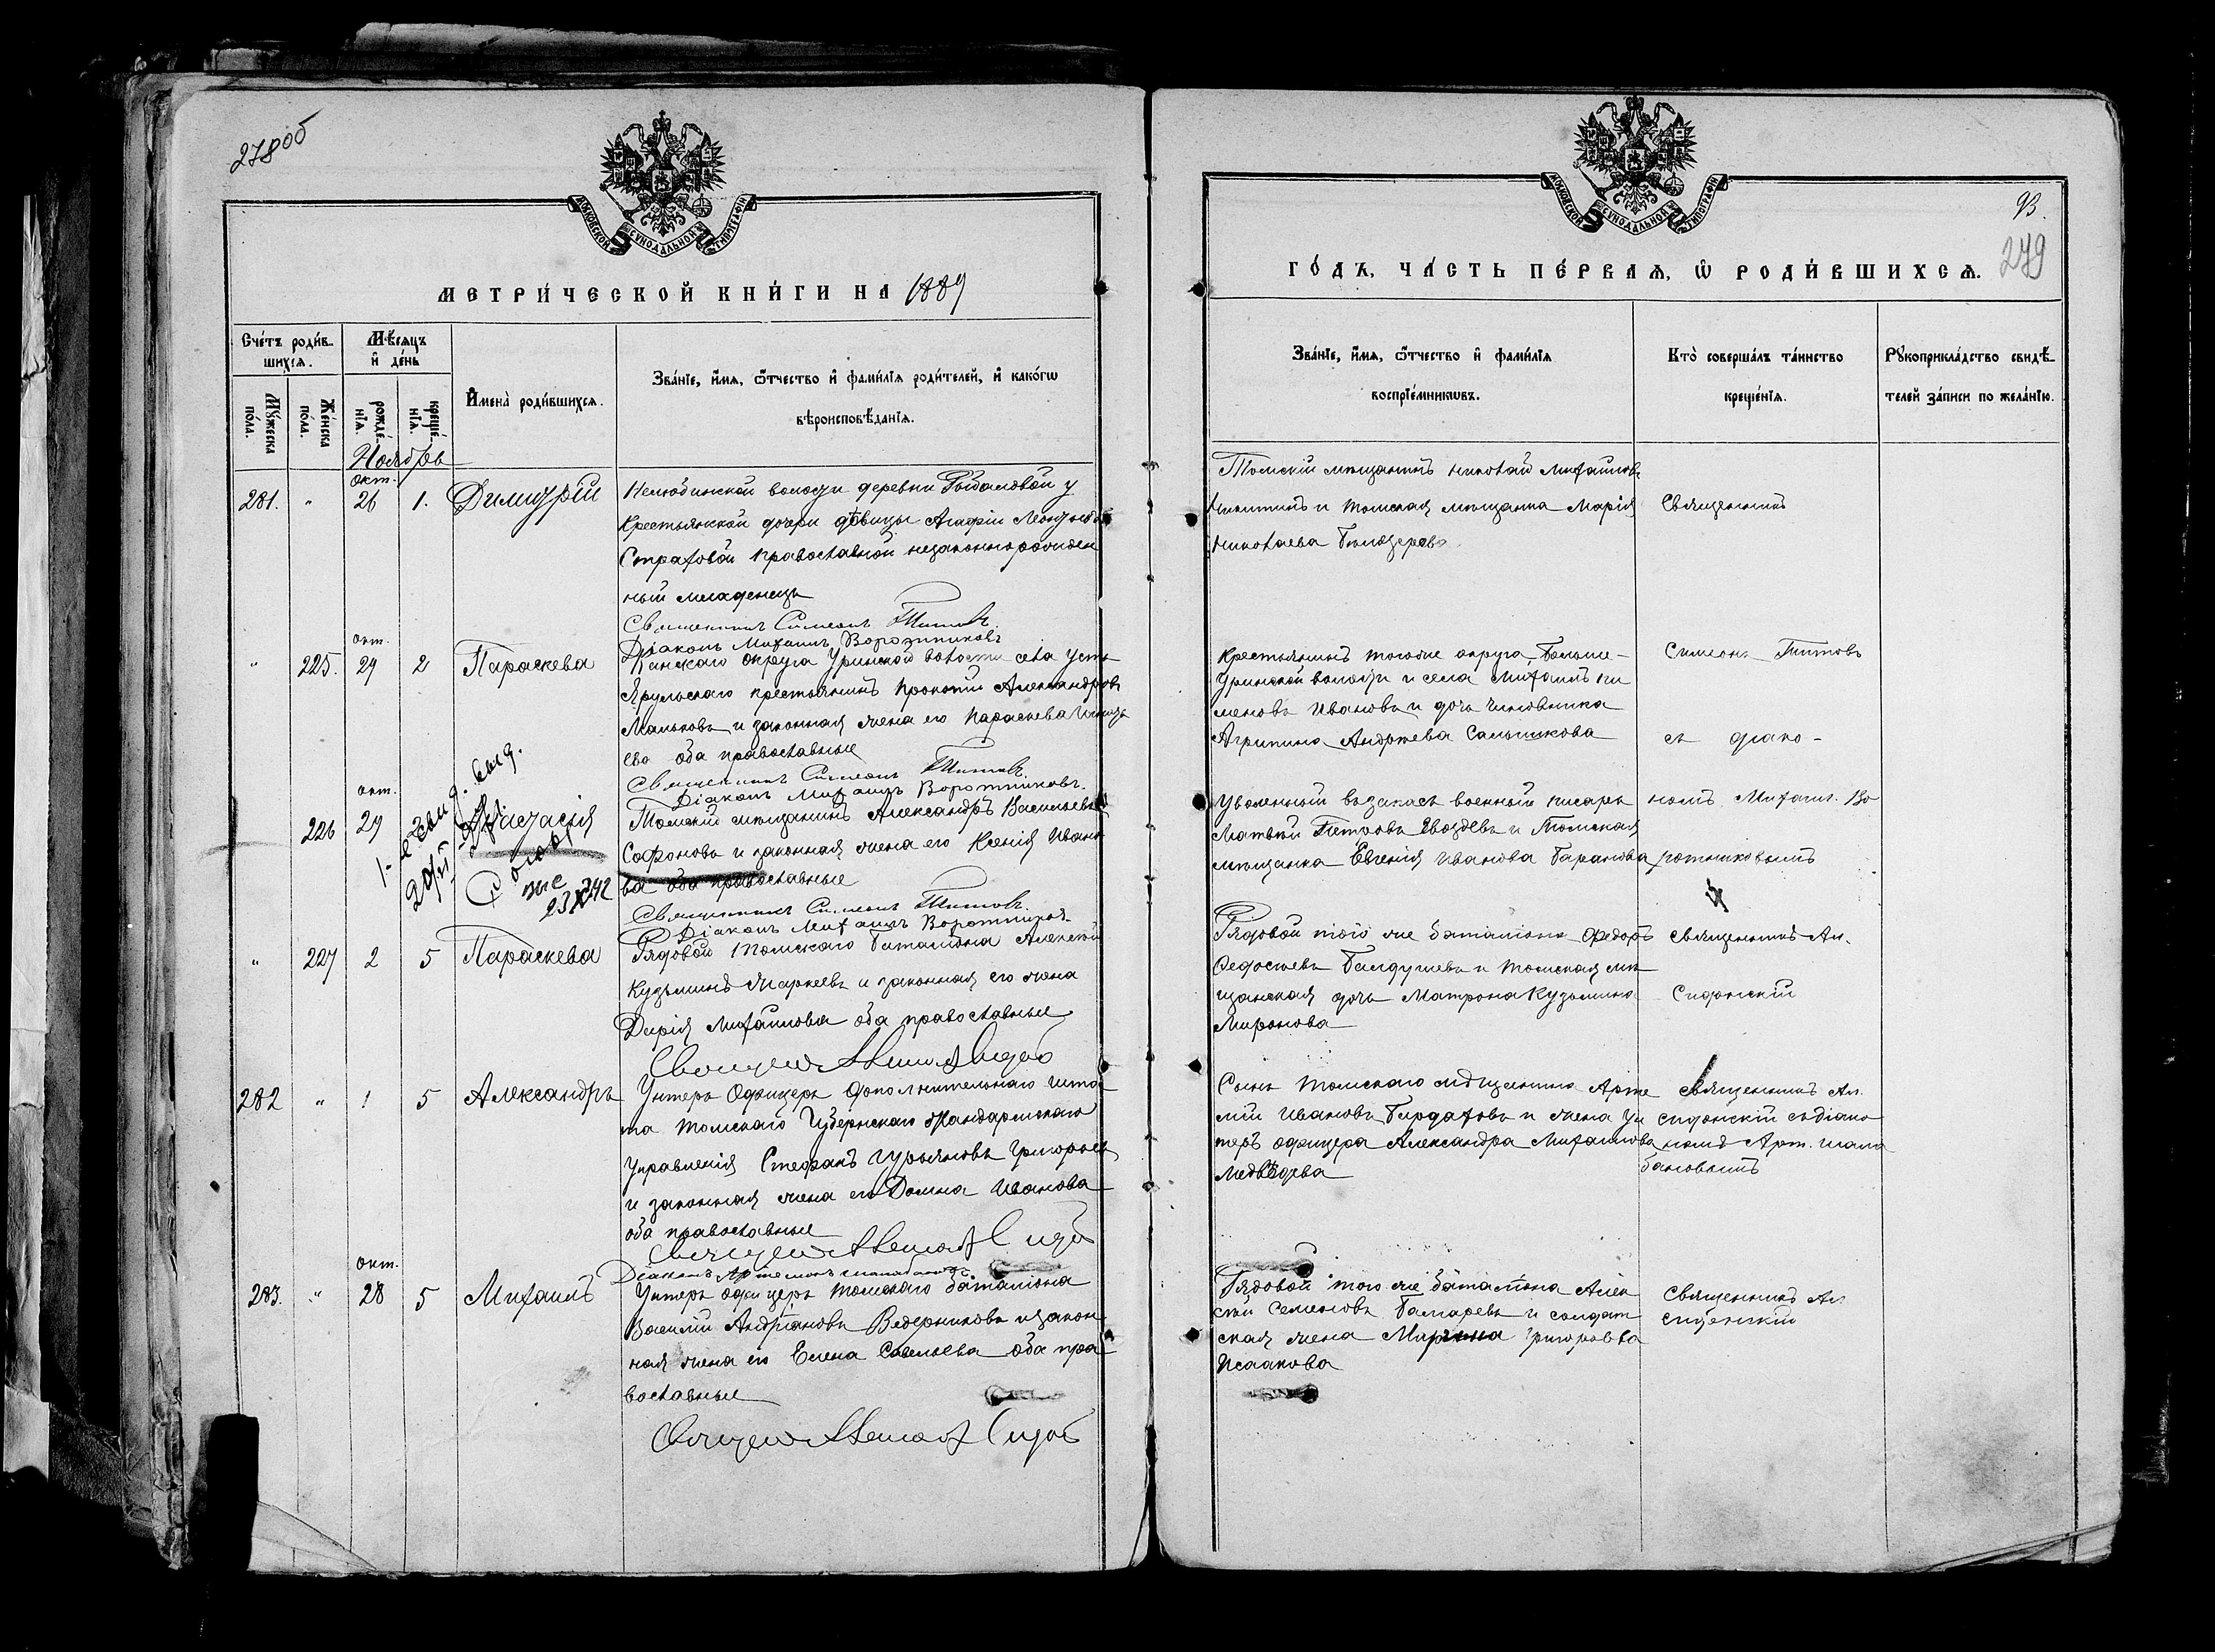 278об
МОСКОВСКОЙ СУНОДАЛЬНОЙ ТИПОГРАФІИ
МЕТРИ́ЧЕСКОЙ КНИ́ГИ НА 1889
Сче́тъ роди́в-
шихсѧ.
Мѣ́сѧцъ
и҆ де́нь
Мꙋ́жеска
по́ла.
Же́нска
по́ла.
рожде́-
нїѧ.
креще́-
нїѧ.
И҆мена̀ роди́вшихсѧ.
Зва́нїе, и҆́мѧ, ѻ҆́тчество и҆ фами́лїѧ роди́телей, и҆ како́гѡ
вѣроисповѣ́данїѧ.
Ноябрь
окт.
281. " 26 1. Димитрій
Нелюбинской волости деревни Рыбаловой у
крестьянской дочери дѣвицы Агафіи
Страховой православной незаконнорожден
ный младенецъ
Священникъ Симеонъ Титовъ.
Діаконъ Михаилъ Воротниковъ
окт.
" 225. 29 2 Параскева
Канскаго округа Уринской волости села Усть
Ярульскаго крестьянинъ Прокопій Александровъ
Мальковъ и законная жена его Параскева
ева оба православные
Священникъ Симеонъ Титовъ.
Діаконъ Михаилъ Воротниковъ.
окт.
226 29 Анастасія
Томскій мѣщанинъ Александръ Васильевъ
Сафоновъ и законная жена его Ксенія Ивано
ва оба православные
Священникъ Симеонъ Титовъ.
Діаконъ Михаилъ Воротников
" 227 2 5 Параскева
Рядовой Томскаго баталіона Алексѣй
Кузьминъ и законная его жена
Дарія Михайлова оба православные
282 " 1 5 Александръ
Унтеръ Офицеръ дополнительнаго шта
та Томскаго Губернскаго Жандармскаго
Управленія Стефанъ Гурьяновъ Григорьев
и законная жена его Домна Иванова
оба православные
Діаконъ
окт.
283. " 28 5 Михаилъ
Унтеръ офицеръ Томскаго баталіона
Василій Андріановъ Ведерниковъ и закон
ная жена его Елена Савельева оба пра
вославные
93.
279
МОСКОВСКОЙ СУНОДАЛЬНОЙ ТИПОГРАФІИ
ГО́ДЪ, ЧА́СТЬ ПЕ́РВАѦ, Ѡ҆ РОДИ́ВШИХСѦ.
Зва́нїе, и҆́мѧ, ѻ҆́тчество и҆ фами́лїѧ
воспрїе́мникѡвъ.
Кто̀ соверша́лъ та́инство
креще́нїѧ.
Рꙋкоприкла́дство свидѣ́-
телей за́писи по жела́нїю.
Томскій мѣщанинъ Николай Михайловъ
Никитинъ и Томская мѣщанка Марія
Николаева Бѣлозерова
Священникъ
Крестьянинъ тогоже округа, Больше-
Уринской волости и села Михаилъ Пи
меновъ Ивановъ и дочь чиновника
Агрипина Андреева Сальникова
Симеонъ Титовъ
съ діако-
Уволенный въ запасъ военный писарь
Матвѣй Петровъ Гвоздевъ и Томская
мѣщанка Евгенія Иванова Баранова
номъ Михаил. Во
ротниковымъ
Рядовой того же баталіона Федоръ
Федосѣевъ и Томская мѣ
щанская дочь Матрона Кузьмина
Миронова
Священникъ Ал.
Сидонскій
Сынъ Томскаго мѣщанина Арте
мій Ивановъ и жена Ун
теръ офицера Александра Михайлова
Медвѣдева
Священникъ Ал.
Сидонскій съ діако
номъ Арт. Шала
бановымъ
Рядовой того же баталіона Алек
сѣй Семеновъ и солдат
ская жена Марина Григорьева
Исакова
Священникъ Ал.
Сидонскій